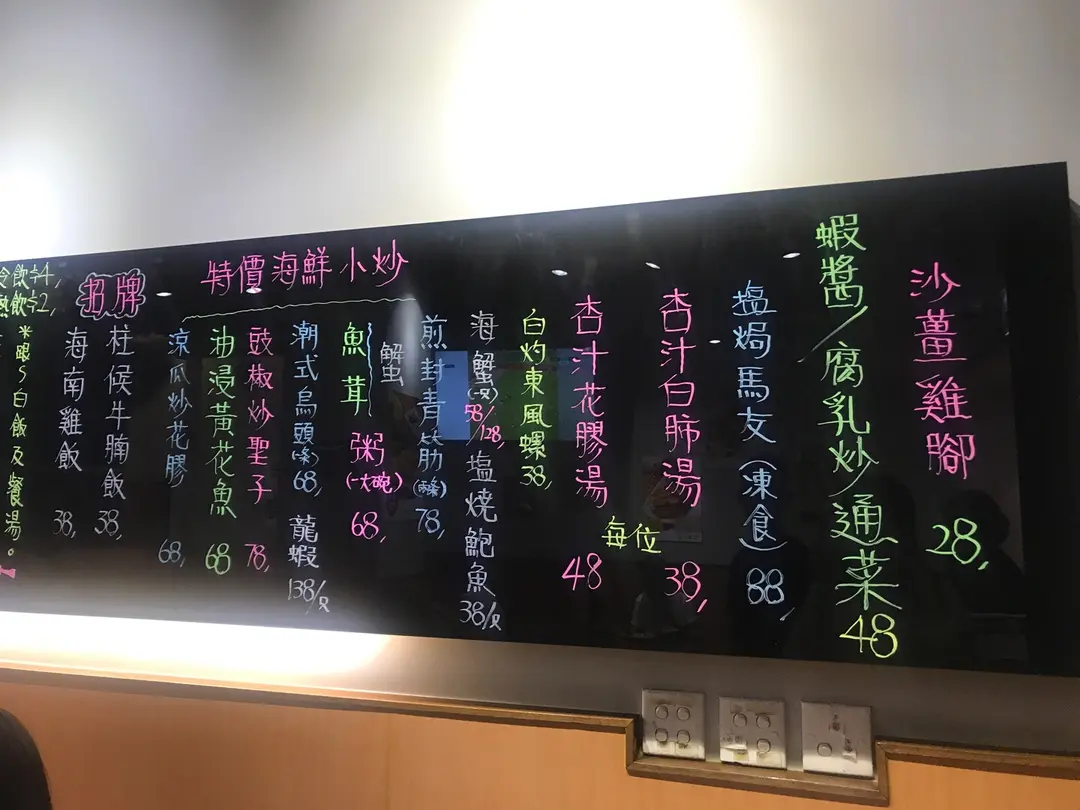 沙薑雞腳 28,
蝦醬/腐乳炒通菜 48
塩焗馬友(凍食) 88,
杏汁白肺湯 38,
每位
杏汁花膠湯 48
白灼東風螺 38,
海蟹(隻) 58/128,
塩燒鮑魚 38/只
煎封青筋(兩條) 78,
特價海鮮小炒
蟹
魚茸
粥(一大碗) 68,
潮式烏頭(条) 68,
龍蝦 138/只
豉椒炒聖子 78,
油浸黃花魚 68
涼瓜炒花膠 68,
招牌
柱候牛腩飯 38,
海南雞飯 38,
冷飲+4,
熱飲+2,
*跟白飯及餐湯。